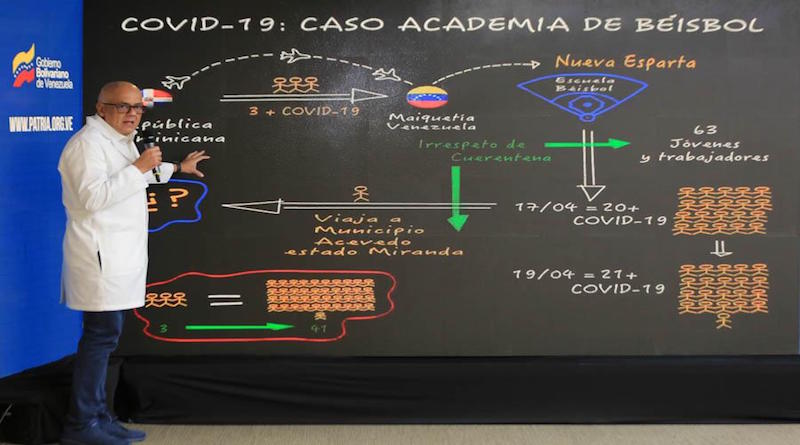 COVID-19: CASO ACADEMIA DE BÉISBOL
Gobierno
Bolivariano
de Venezuela
WWW.PATRIA.ORG.VE
3 + COVID-19
Maiquetía
Venezuela
Nueva Esparta
Escuela
Béisbol
Irrespeto de
Cuerentena
63
Jóvenes
y trabajadores
?
Viaja a
Municipio
Acevedo
estado Miranda
17/04 = 20+
COVID-19
19/04 = 21+
COVID-19
=
3
41